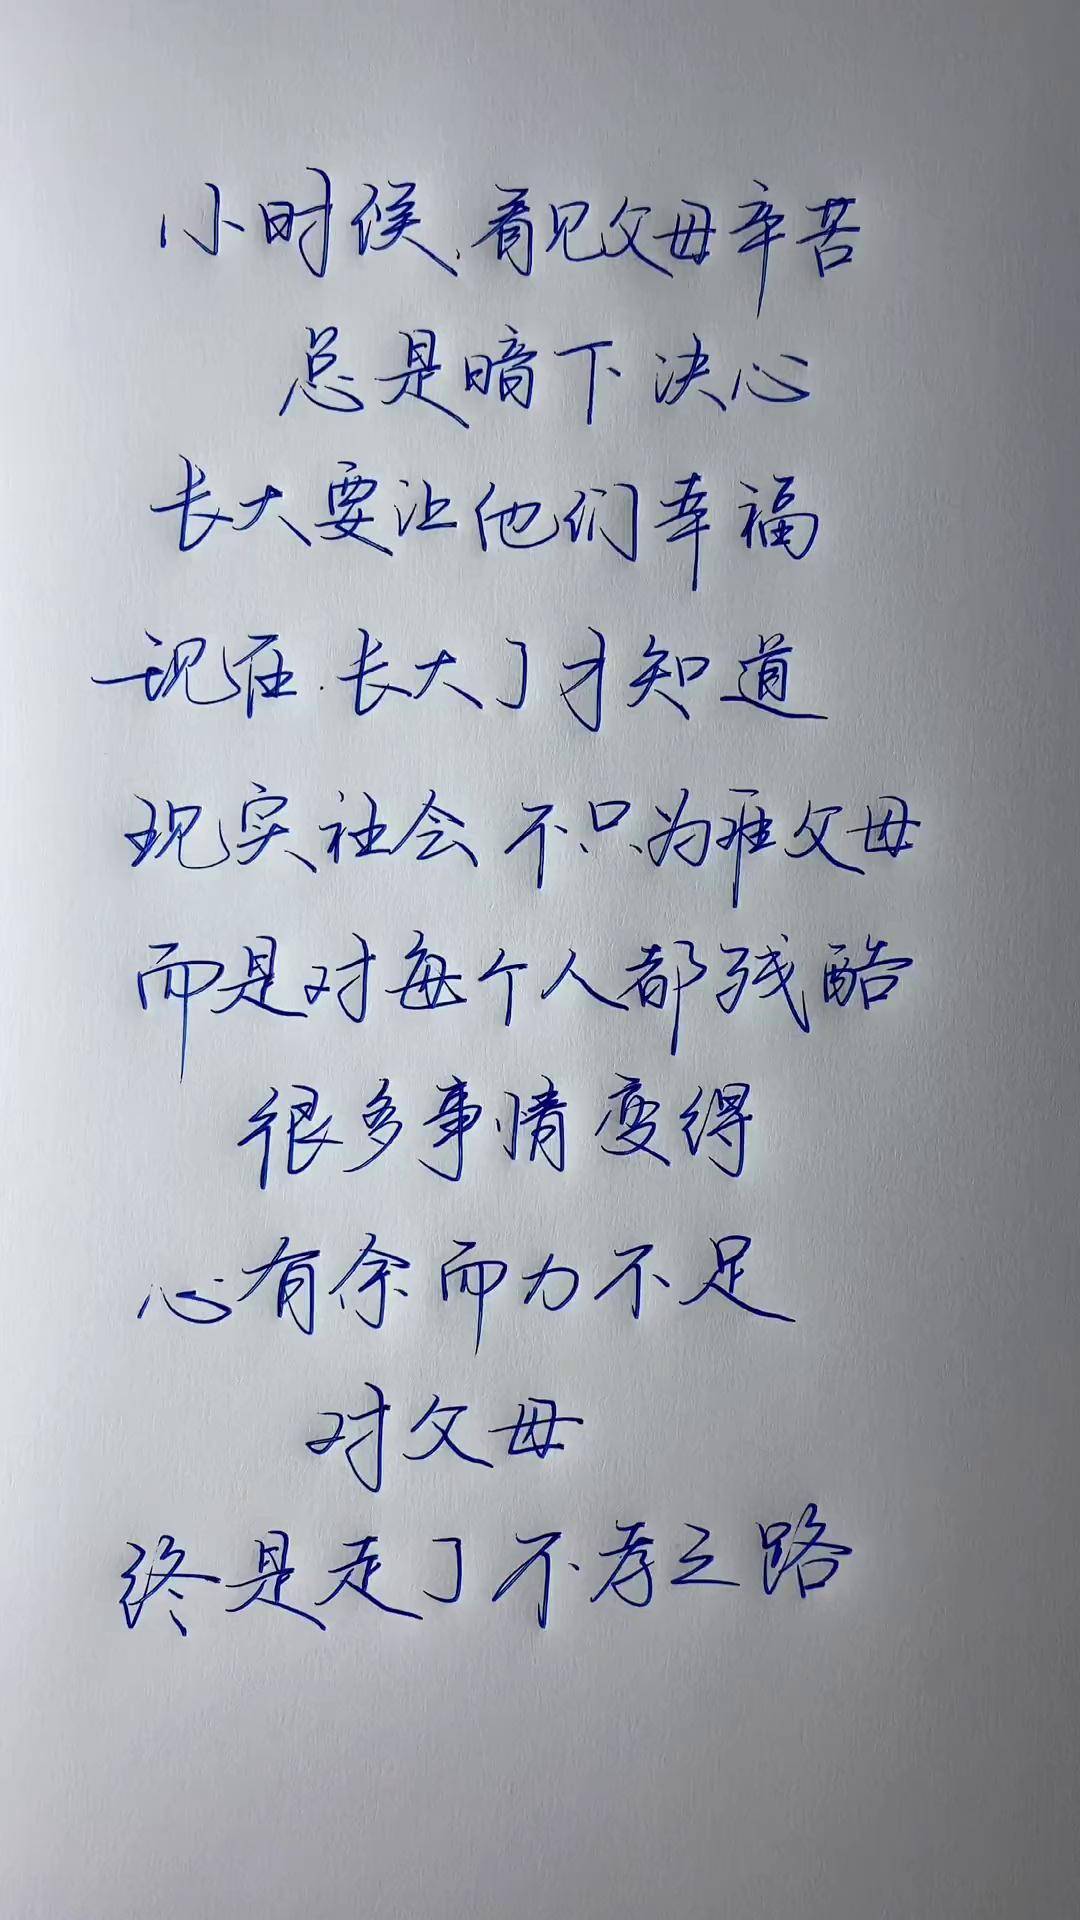 小时候,看见父母辛苦
总是暗下决心
长大要让他们幸福
现在.长大了才知道
现实社会不只为难父母
而是对每个人都残酷
很多事情变得
心有余而力不足
对父母
终是走了不孝之路